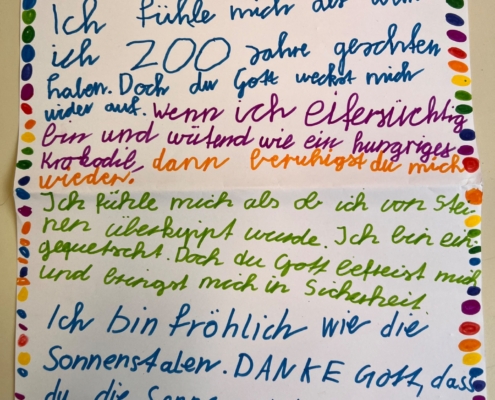 Ich fühle mich als wenn
ich 200 Jahre geschlten
haben. Doch du Gott weckst mich
wider auf. Wenn ich eifersüchtig
bin und wütend wie ein hungriges
Krokodil, dann beruhigst du mich
wieder.
Ich fühle mich als ob ich von Stei-
nen überkippt wurde. Ich bin ein-
gequetscht. Doch du Gott befreist mich
und bringst mich in Sicherheit.
Ich bin fröhlich wie die
Sonnenstalen. DANKE Gott, dass
du die Sonne